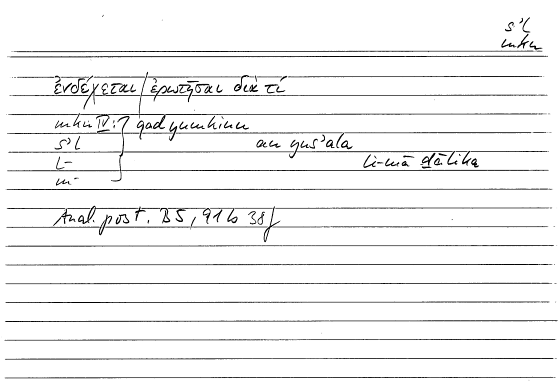 s'l
mkn
ἐνδέχεται / ἐρωτῆσαι διὰ τί
mkn IV: } qad yumkinu
s'l an yus'ala
l- li-mā ḏālika
m-
Anal. post. B5, 91 b 38 f